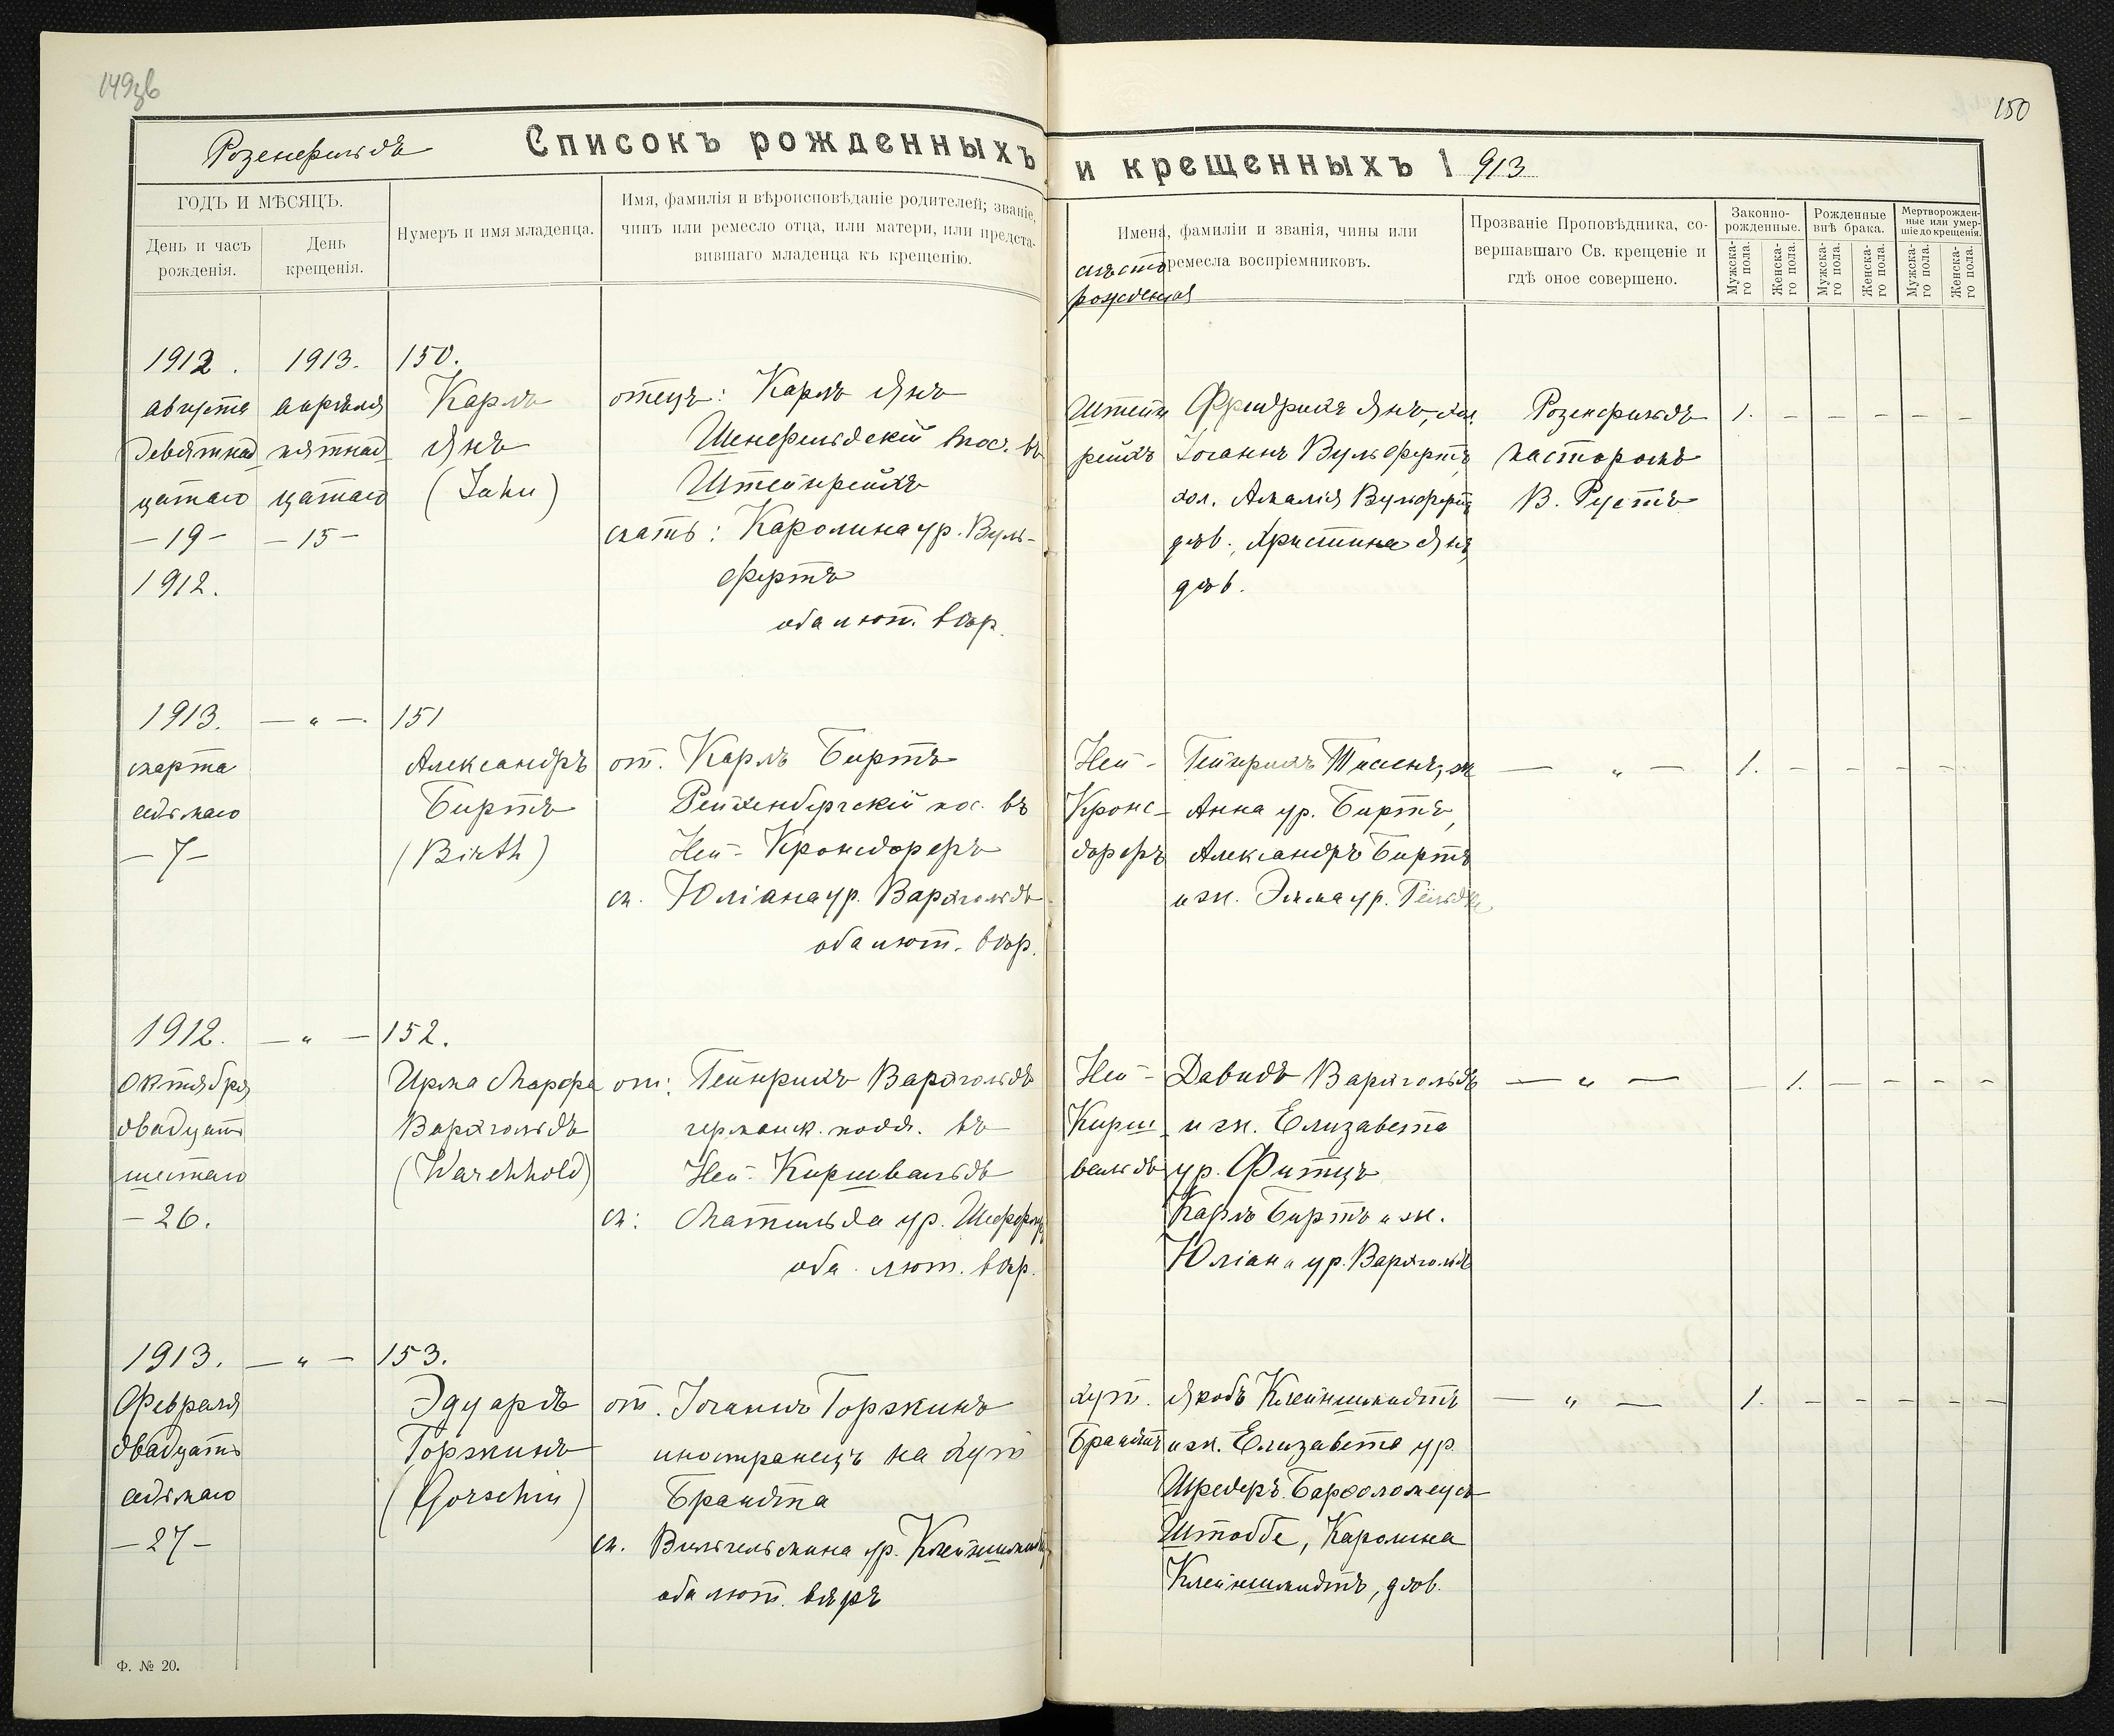 149об
150
Розенфельдъ
Списокъ рожденныхъ и крещенныхъ 1 913
ГОДЪ И МѢСЯЦЪ.
День и часъ
рожденія.
День
крещенія.
Нумеръ и имя младенца.
Имя, фамилія и вѣроисповѣданіе родителей; званіе,
чинъ или ремесло отца, или матери, или предста-
вившаго младенца къ крещенію.
мѣсто
рожденія
Имена, фамиліи и званія, чины или
ремесла воспріемниковъ.
Прозваніе Проповѣдника, со-
вершавшаго Св. крещеніе и
гдѣ оное совершено.
Законно-
рожденные.
Рожденные
внѣ брака.
Мертворожден-
ные или умер-
шіе до крещенія.
Мужска-
го пола.
Женска-
го пола.
Мужска-
го пола.
Женска-
го пола.
Мужска-
го пола.
Женска-
го пола.
1912.
августа
девятнад
цатаго
– 19 –
1912.
1913.
апрѣля
пятнад
цатаго
– 15 –
150.
Карлъ
Янъ
(Jahn)
отецъ: Карлъ Янъ
Шенфельдскій пос. въ
Штейнрейхъ
мать: Каролина ур. Вуль-
фертъ
оба лют. вѣр.
Штейн
рейхъ
Фридрихъ Янъ, хол.
Іоганнъ Вульфертъ
хол. Амалія Вульфертъ
дѣв., Христина Янъ,
дѣв.
Розенфельдъ
пасторомъ
В. Рустъ
1. – – – – –
1913.
марта
седьмаго
– 7 –
— „ —
151
Александръ
Биртъ
(Birth)
от. Карлъ Биртъ
Рейхенбергскій пос. въ
Ней-Кронсдорфъ
м. Юліана ур. Вархгольдъ
оба лют. вѣр.
Ней-
Кронс-
дорфъ
Гейнрихъ Тиссенъ, ж
Анна ур. Биртъ,
Александръ Биртъ
и ж. Эмма ур.
— „ —
1. – – – – –
1912.
Октября
двадцать
шестаго
– 26.
— „ —
152.
Ирма Марфа
Вархгольдъ
(Warchhold)
от: Гейнрихъ Вархгольдъ
германск. подд. въ
Ней-Киршвальдъ
м: Матильда ур.
оба лют. вѣр.
Ней-
Кирш
вальдъ
Давидъ Вархгольдъ
и ж. Елизавета
ур. Фитцъ
Карлъ Биртъ и ж.
Юліана ур. Вархгольдъ
— „ —
– 1. – – – –
1913.
Февраля
двадцать
седьмаго
– 27 –
— „ —
153.
Эдуардъ
Горжинъ
(Gorschin)
от. Іоганнъ Горжинъ
иностранецъ на хут
Брандта
м. Вильгельмина ур. Клейншмидтъ
оба лют. вѣръ
хут.
Брандта
Якобъ Клейншмидтъ
и ж. Елизавета ур.
Шредеръ. Барфоломеусъ
Штоббе, Каролина
Клейншмидтъ, дѣв.
— „ —
1. – – – – –
Ф. № 20.